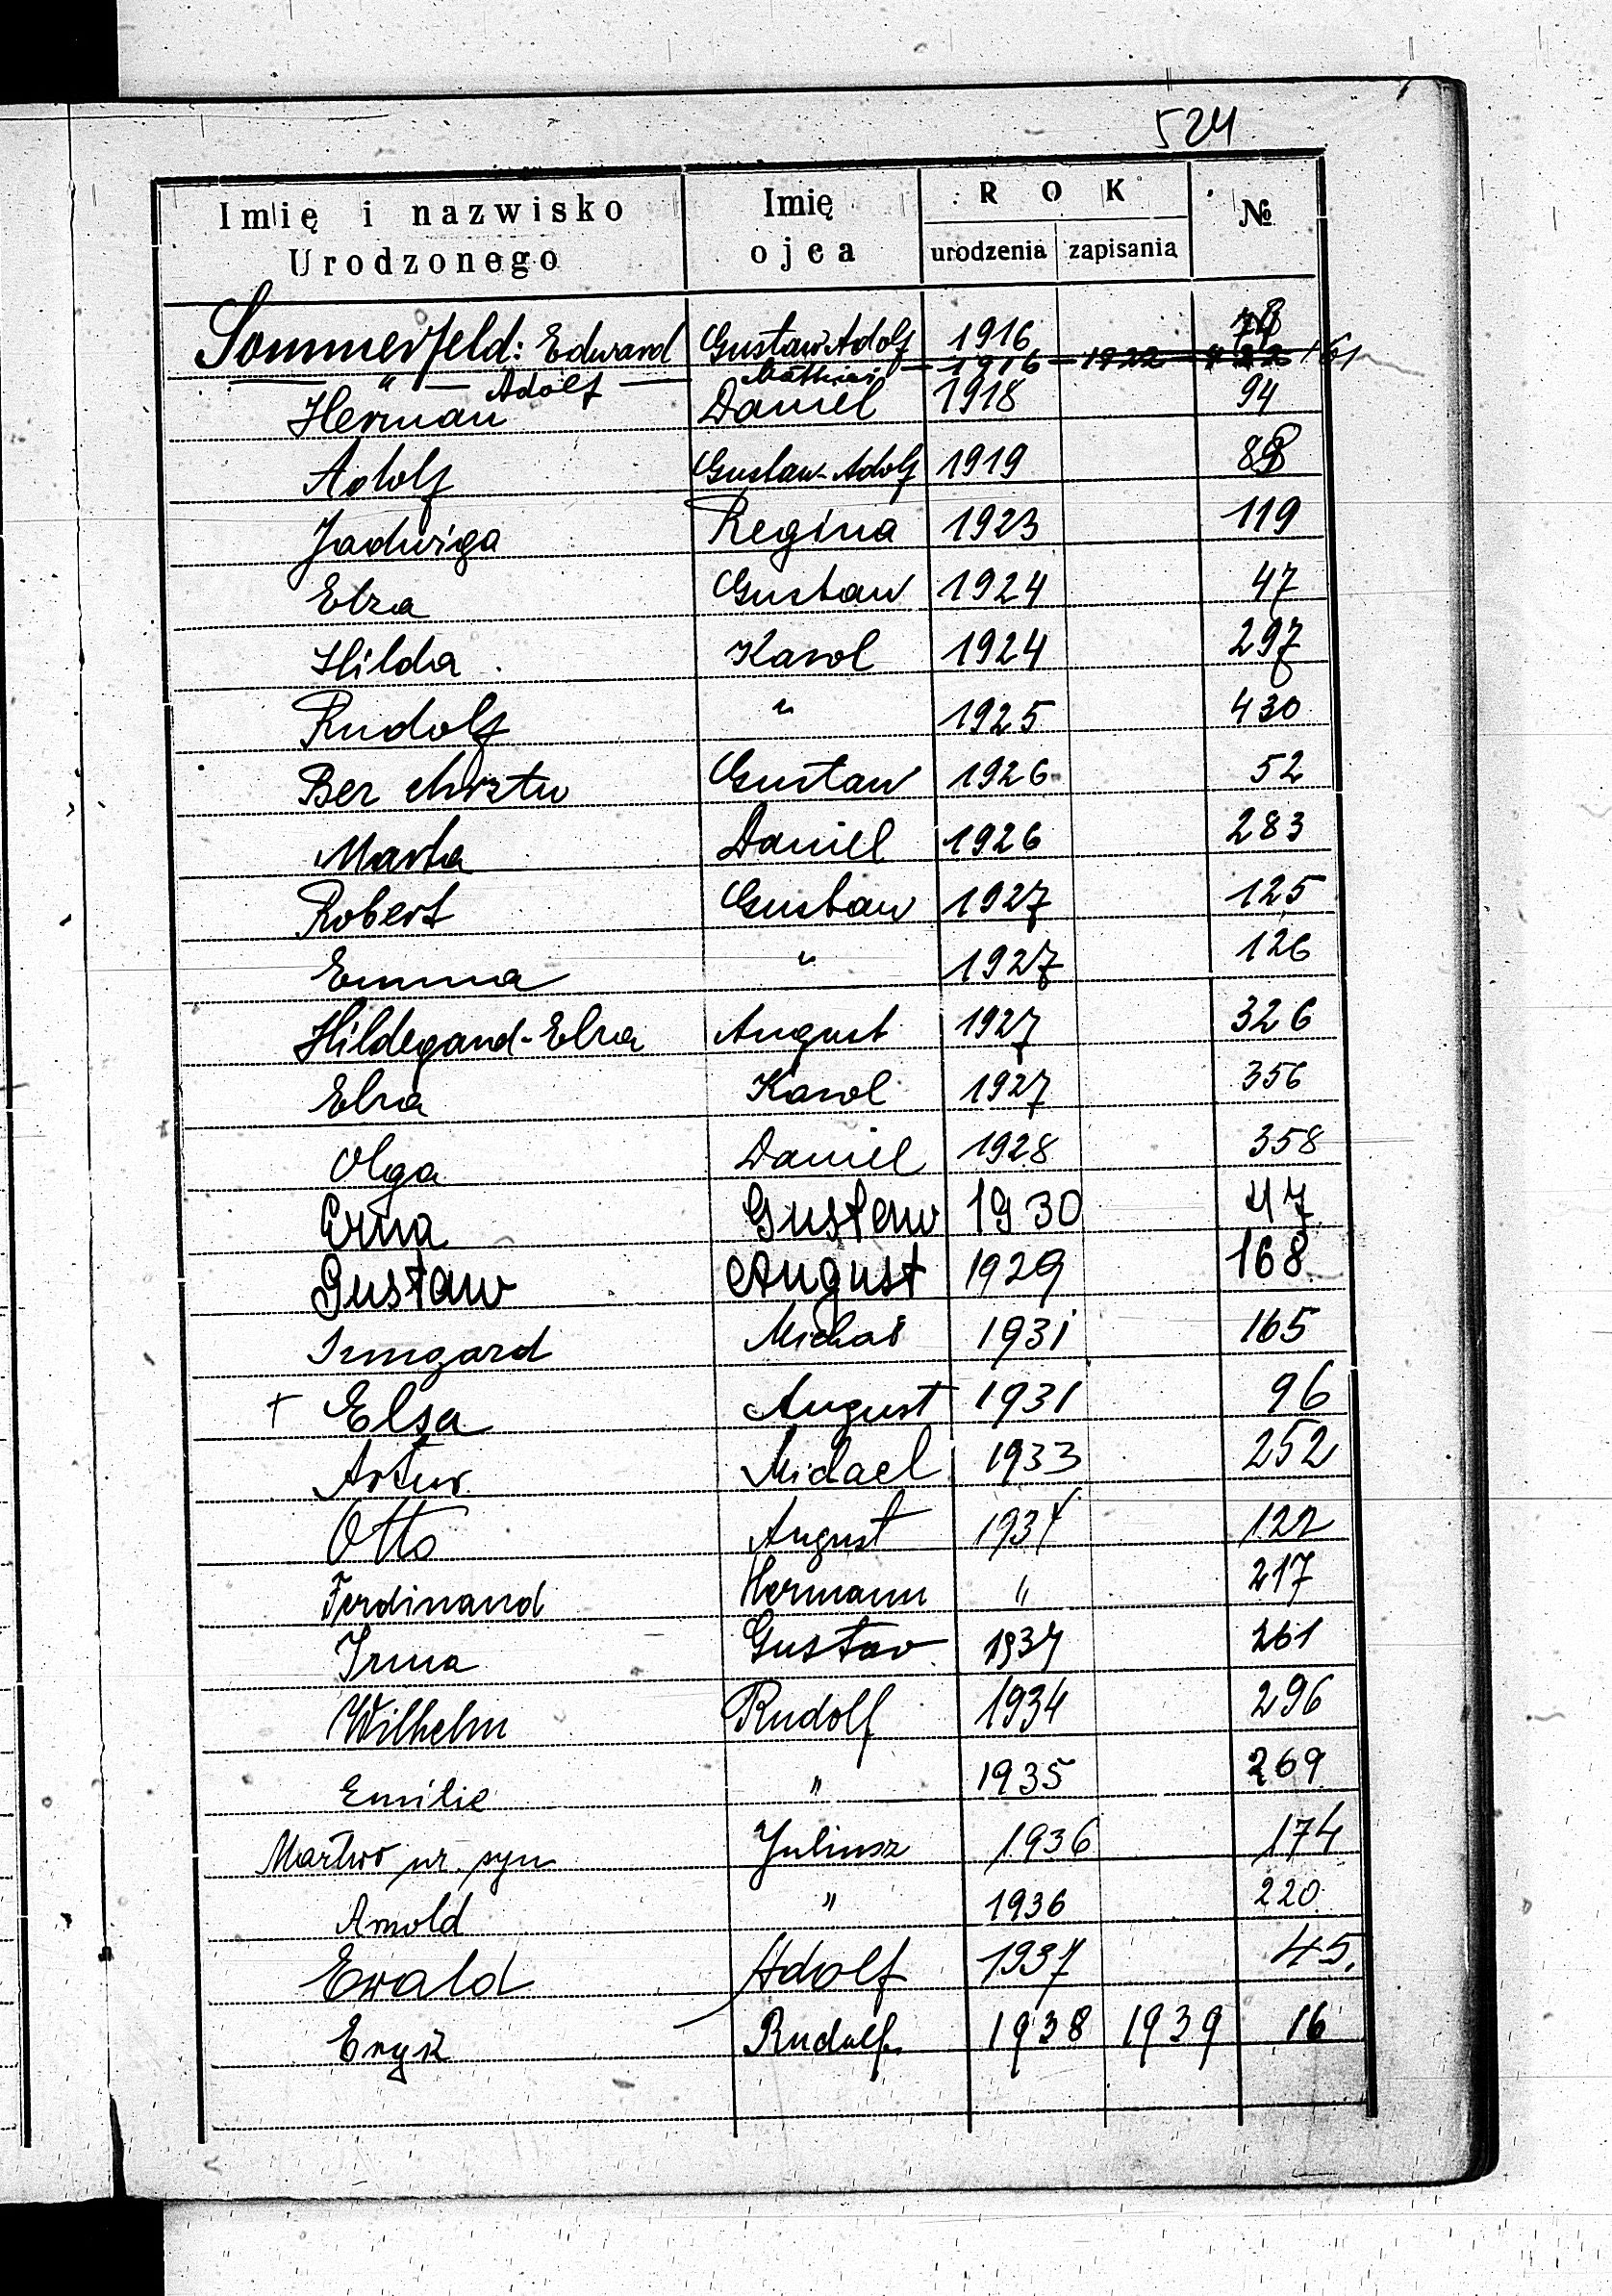 524
Imię i nazwisko Urodzonego Imię ojca ROK urodzenia zapisania №
Sommerfeld: Edward Gustaw Adolf 1916
" Adolf Mathias 1916 1922 161
Herman Daniel 1918 94
Adolf Gustaw-Adolf 1919
Jadwiga Regina 1923 119
Elza Gustaw 1924 47
Hilda Karol 1924 297
Rudolf " 1925 430
Bez chrztu Gustaw 1926 52
Marta Daniel 1926 283
Robert Gustaw 1927 125
Emma " 1927 126
Hildegard-Elza August 1927 326
Elza Karol 1927 356
Olga Daniel 1928 358
Erna Gustaw 1930 47
Gustaw August 1929 168
Irmgard Michał 1931 165
+ Elsa August 1931 96
Artur Michael 1933 252
Otto August 1934 122
Ferdinand Hermann " 217
Irma Gustav 1934 261
Wilhelm Rudolf 1934 296
Emilie " 1935 269
Martwo ur. syn Juliusz 1936 174
Arnold " 1936 220
Ewald Adolf 1937 45.
Eryk Rudolf 1938 1939 16